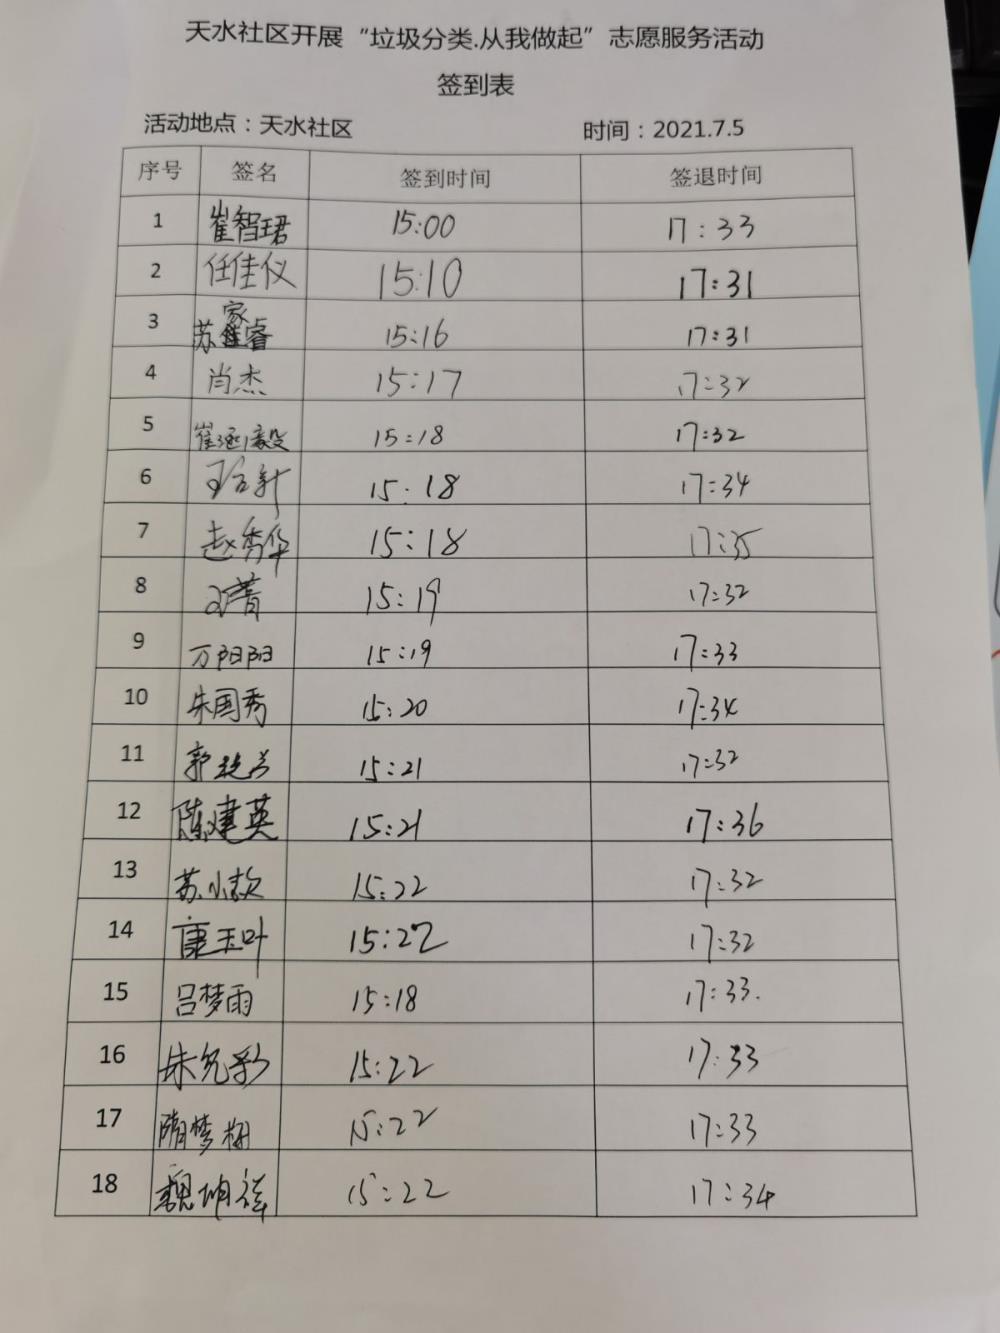 天水社区开展“垃圾分类.从我做起”志愿服务活动
签到表
活动地点：天水社区 时间：2021.7.5
序号 签名 签到时间 签退时间
1 崔智珺 15:00 17:33
2 任佳仪 15:10 17:31
3 苏家睿 15:16 17:31
4 肖杰 15:17 17:32
5 15:18 17:32
6 15:18 17:34
7 赵秀华 15:18 17:35
8 15:19 17:32
9 万阳阳 15:19 17:33
10 朱国秀 15:20 17:34
11 郭 15:21 17:32
12 陈建英 15:21 17:36
13 苏小 15:22 17:32
14 康玉叶 15:22 17:32
15 吕梦雨 15:18 17:33.
16 朱允彩 15:22 17:33
17 隋梦 15:22 17:33
18 魏坤 15:22 17:34